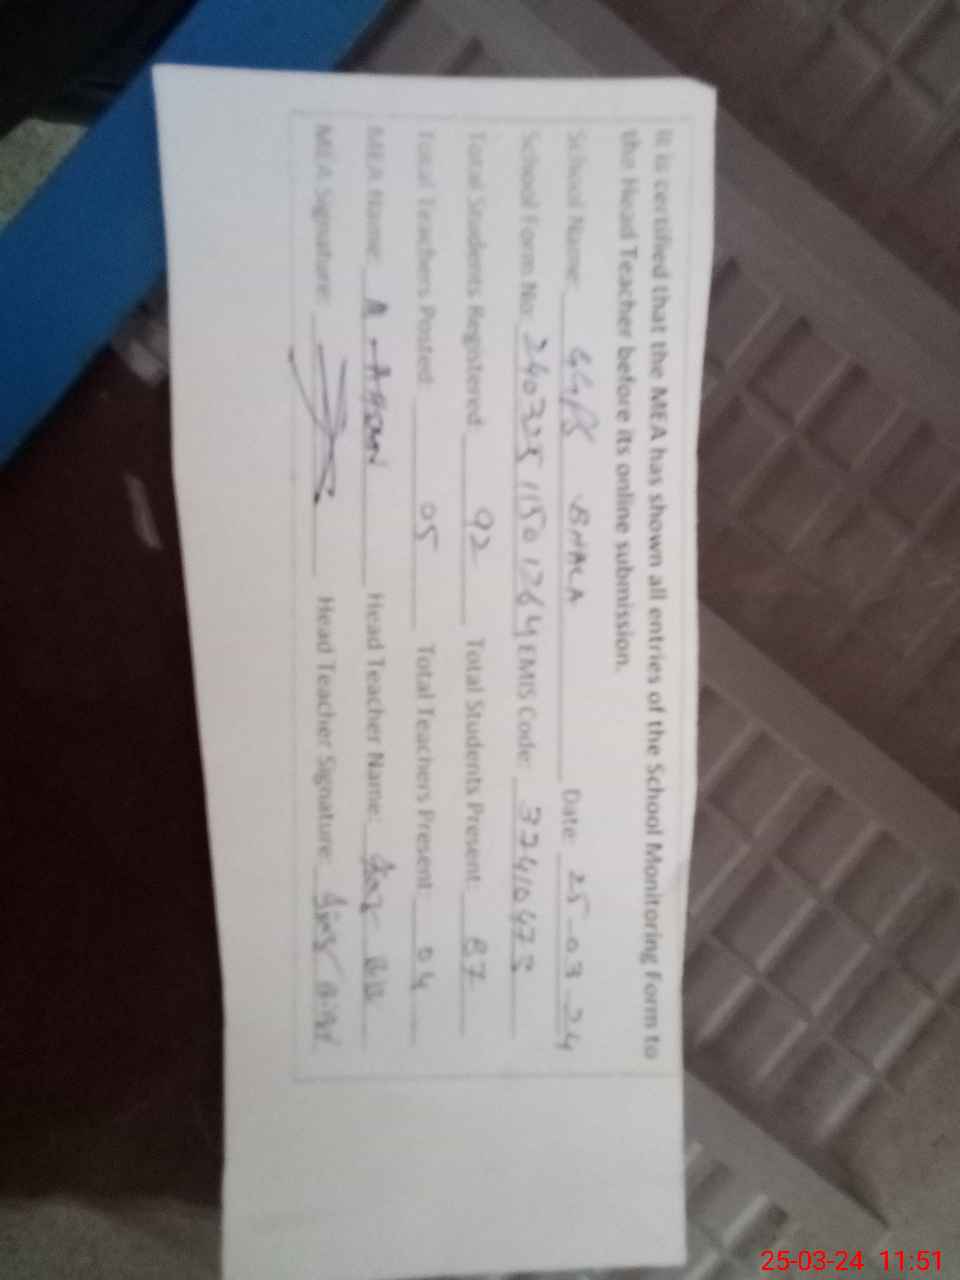 It is certified that the MEA has shown all entries of the School Monitoring Form to
the Head Teacher before its online submission.
School Name: GGPS BHALA Date: 25-03-24
School Form No: 240325 1150 1264 EMIS Code: 32410473
Total Students Registered 92 Total Students Present: 87
Total Teachers Posted 05 Total Teachers Present: 04
MEA Name: Head Teacher Name:
MEA Signature: Head Teacher Signature:
25-03-24 11:51